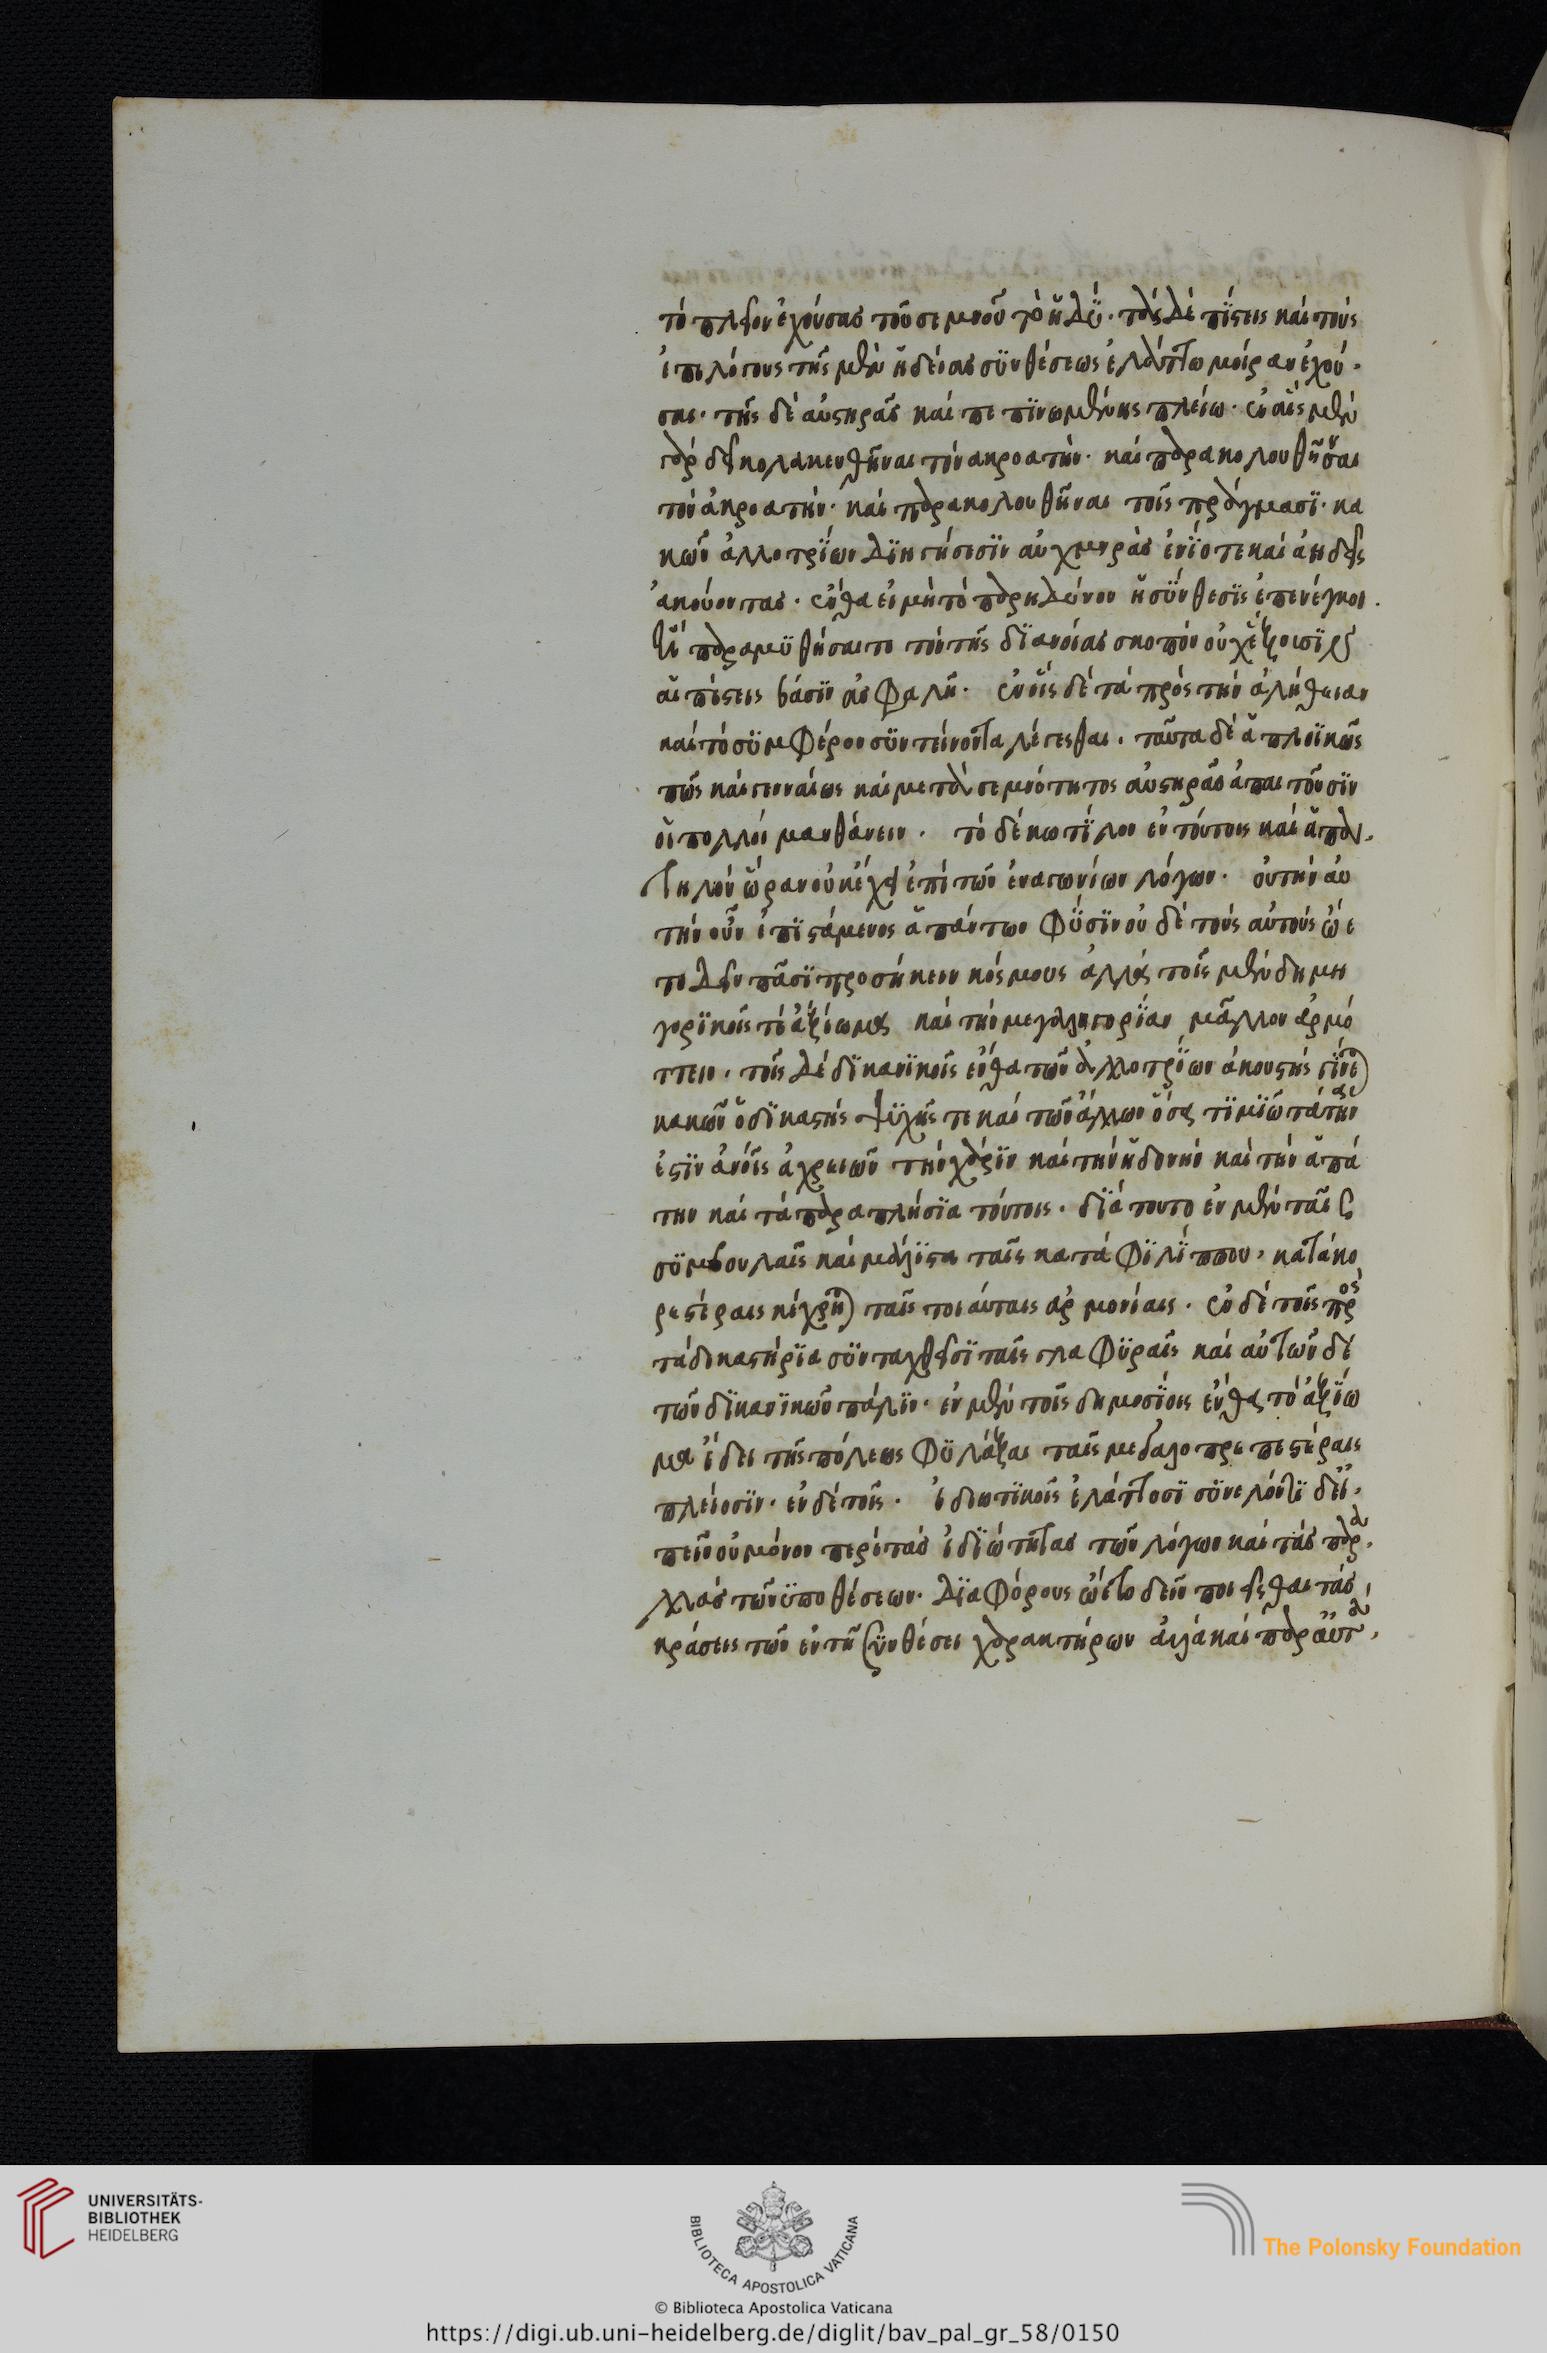 τὸ πλεῖον ἐχούσας τοῦ σεμνοῦ τὸ ἡδύ· τὰς δὲ πίστεις καὶ τοὺς
ἐπιλόγους τῆς μὲν ἡδείας συνθέσεως ἐλάττω μοίραν ἐχού·
σας· τῆς δὲ αὐστηρᾶς καὶ πεπινωμένης πλείω· ἐν αἷς μὲν
γὰρ δεῖ κολακευθῆναι τὸν ακροατήν· καὶ παρακολουθῆσαι
τὸν ἀκροατήν· καὶ παρακολουθῆναι τοῖς πράγμασϊ· κα
κῶν ἀλλοτρΐων διηγήσεσϊν αὐχμηρὰς ἐνΐοτε καὶ ἀηδεῖς
ἀκούοντας· ἔνθα εἰ μὴ τὸ παρηδύνον ἡ σύνθεσϊς ἐπενέγκοι·
ἢ παραμυθήσαιτο τὸν τῆς διανοίας σκοπὸν οὐχ ἕξουσϊν
αἱ πίστεις βάσϊν ἀσφαλῆ· ἐν οἷς δὲ τὰ πρὸς τὴν ἀλήθειαν
καὶ τὸ συμφέρον συντείνοντα λέγεσθαι· ταῦτα δὲ ἁπλοϊκῶς
πῶς καὶ γενναίως καὶ μετὰ σεμνότητος αὐστηρᾶς ἀπαιτοῦσϊν
οἱ πολλοὶ μανθάνειν· τὸ δὲ κωτΐλον ἐν τούτοις καὶ ἀπα·
τηλὸν ὥραν οὐκ ἔχει ἐπὶ τῶν ἐναγωνίων λόγων· οὐ τὴν αὐ
τὴν οὖν ἐπϊστάμενος ἁπάντων φύσϊν οὐδὲ τοὺς αὐτοὺς ᾤε
το δεῖν πᾶσϊ προσήκειν κόσμους ἀλλὰ τοῖς μὲν δημη
γορϊκοῖς τὸ ἀξίωμα καὶ τὴν μεγαληγορΐαν μᾶλλον ἁρμό
ττειν· τοῖς δὲ δϊκανϊκοῖς ἔνθα τῶν ἀλλοτρΐων ἀκουστὴς γΐνεται
κακῶν ὁ δϊκαστὴς ψυχῆς τε καὶ τῶν ἄλλων ὅσα τϊμϊώτατα
ἐστϊν ἀνοις ἀγρειῶν τὴν χάρϊν καὶ τὴν ἡδονὴν καὶ τὴν ἀπά
την καὶ τὰ παραπλήσϊα τούτοις· δϊὰ τουτο ἐν μὲν ταῖς
συμβουλαῖς καὶ μάλϊστα ταῖς κατὰ Φϊλΐππου, κατακο
ρεστέραις κέχρηται ταῖς τοιαύταις ἁρμονίαις· ἐν δὲ τοῖς πρὸς
τὰ δικαστήρϊα συνταχθεῖσϊ ταῖς γλαφυραῖς καὶ αὐτῶν δὲ
τῶν δϊκανϊκῶν πάλϊν· ἐν μὲν τοῖς δημοσΐοις ἔνθα τὸ ἀξΐω
μα ἔδει τῆς πόλεως φυλάξαι ταῖς μεγαλοπρεπεστέραις
πλείοσϊν· ἐν δὲ τοῖς· ἰδιωτϊκοῖς ἐλάττοσϊ συνελόντϊ δεῖ·
πεῖν οὐ μόνον περὶ τὰς ἰδϊώτητας τῶν λόγων καὶ τὰς παρα·
λλὰς τῶν ὑποθέσεων· δϊαφόρους ᾤετο δεῖν ποιεῖσθαι τὰς
κράσεις τῶν ἐν τῇ συνθέσει χαρακτήρων ἀλλὰ καὶ παρ αὐτὰ·
UNIVERSITÄTS-
BIBLIOTHEK
HEIDELBERG
BIBLIOTECA APOSTOLICA VATICANA
The Polonsky Foundation
© Biblioteca Apostolica Vaticana
https://digi.ub.uni-heidelberg.de/diglit/bav_pal_gr_58/0150